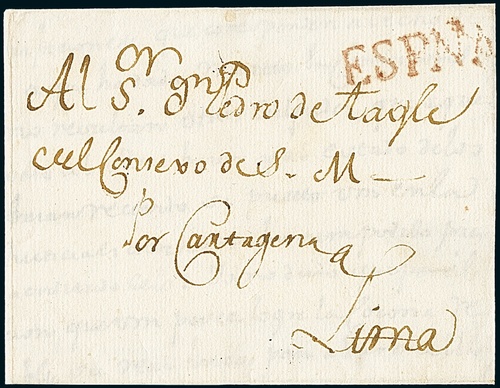 ESPNA
Al S.or Dn Pedro de Tagle
del Consexo de S. M —
Por Cartagena a
Lima